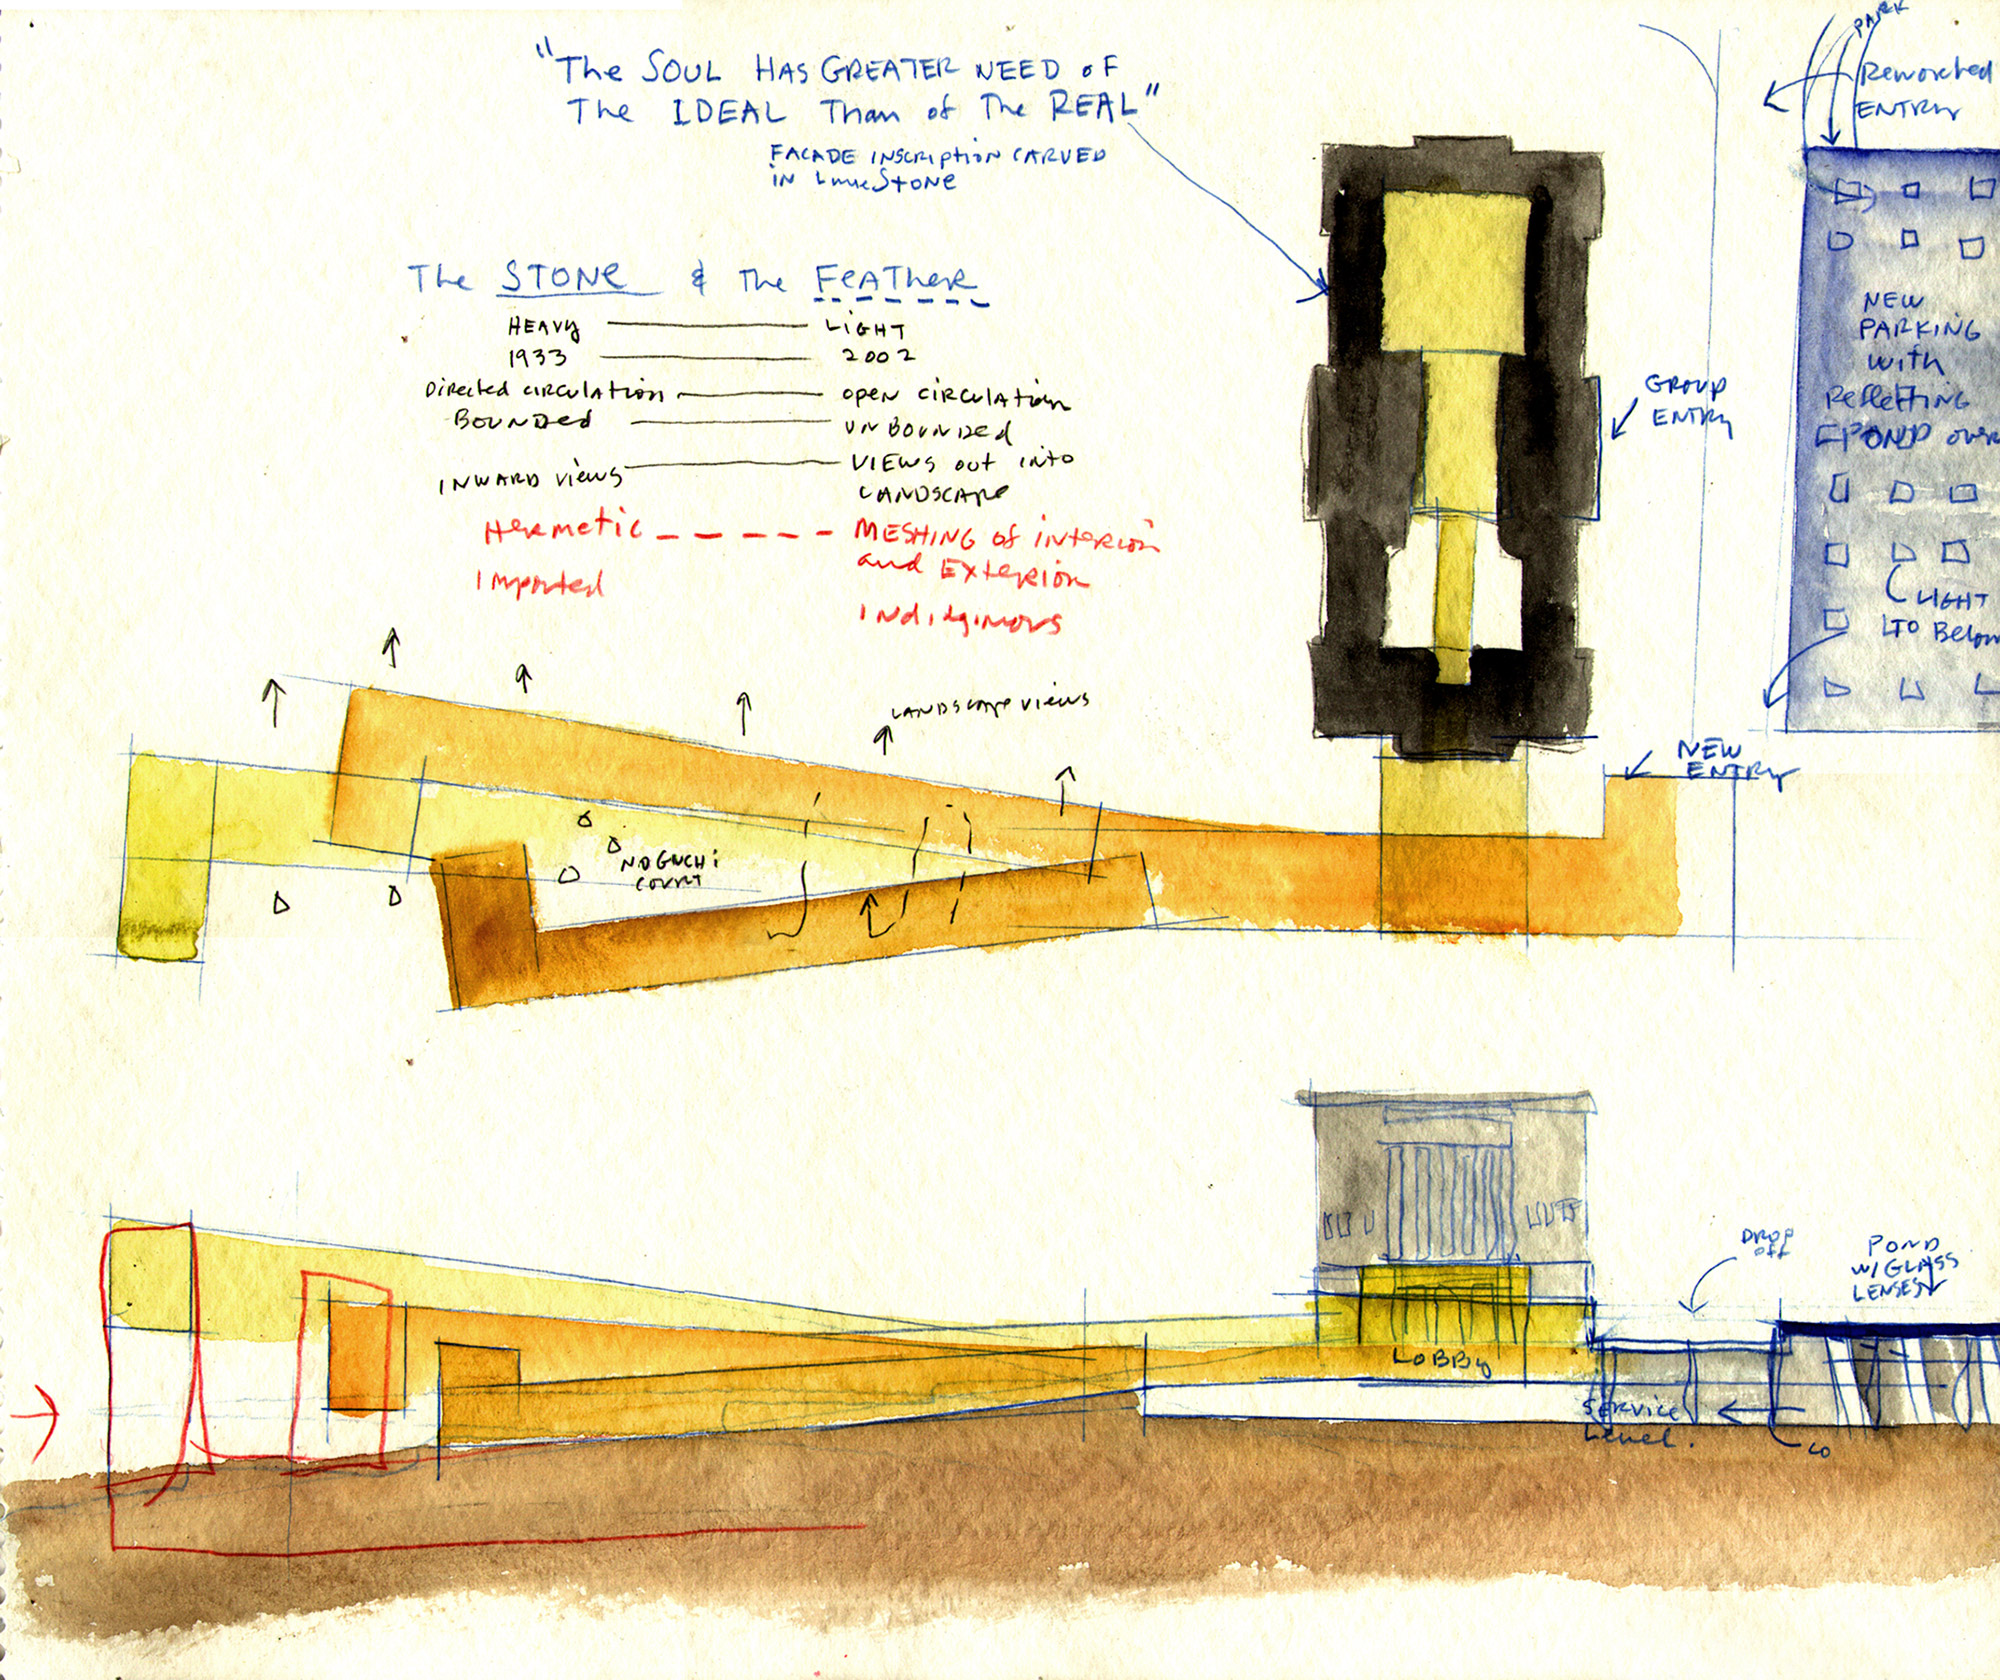 "The SOUL HAS GREATER NEED OF
The IDEAL Than of The REAL"
FACADE INSCRIPTION CARVED
IN LimeSTONE
The STONE & The FeATher
HEAVY LIGHT
1933 2002
Directed CIRCULATION open CIRCULATION
BOUNDED UNBOUNDED
INWARD VIEWS VIEWS out INTO
LANDSCAPE
Hermetic MESHING of INTERIOR
and EXTERIOR
Imported
INdidginous
LANDSCAPE VIEWS
NOGUCHI
COURT
PARK
Reworked
ENTRY
NEW
PARKING
with
Reflecting
POND over
LIGHT
TO Below
GROUP
ENTRY
NEW
ENTRY
DROP
off
POND
W/ GLASS
LENSES
LOBBY
SERVICE
Level.